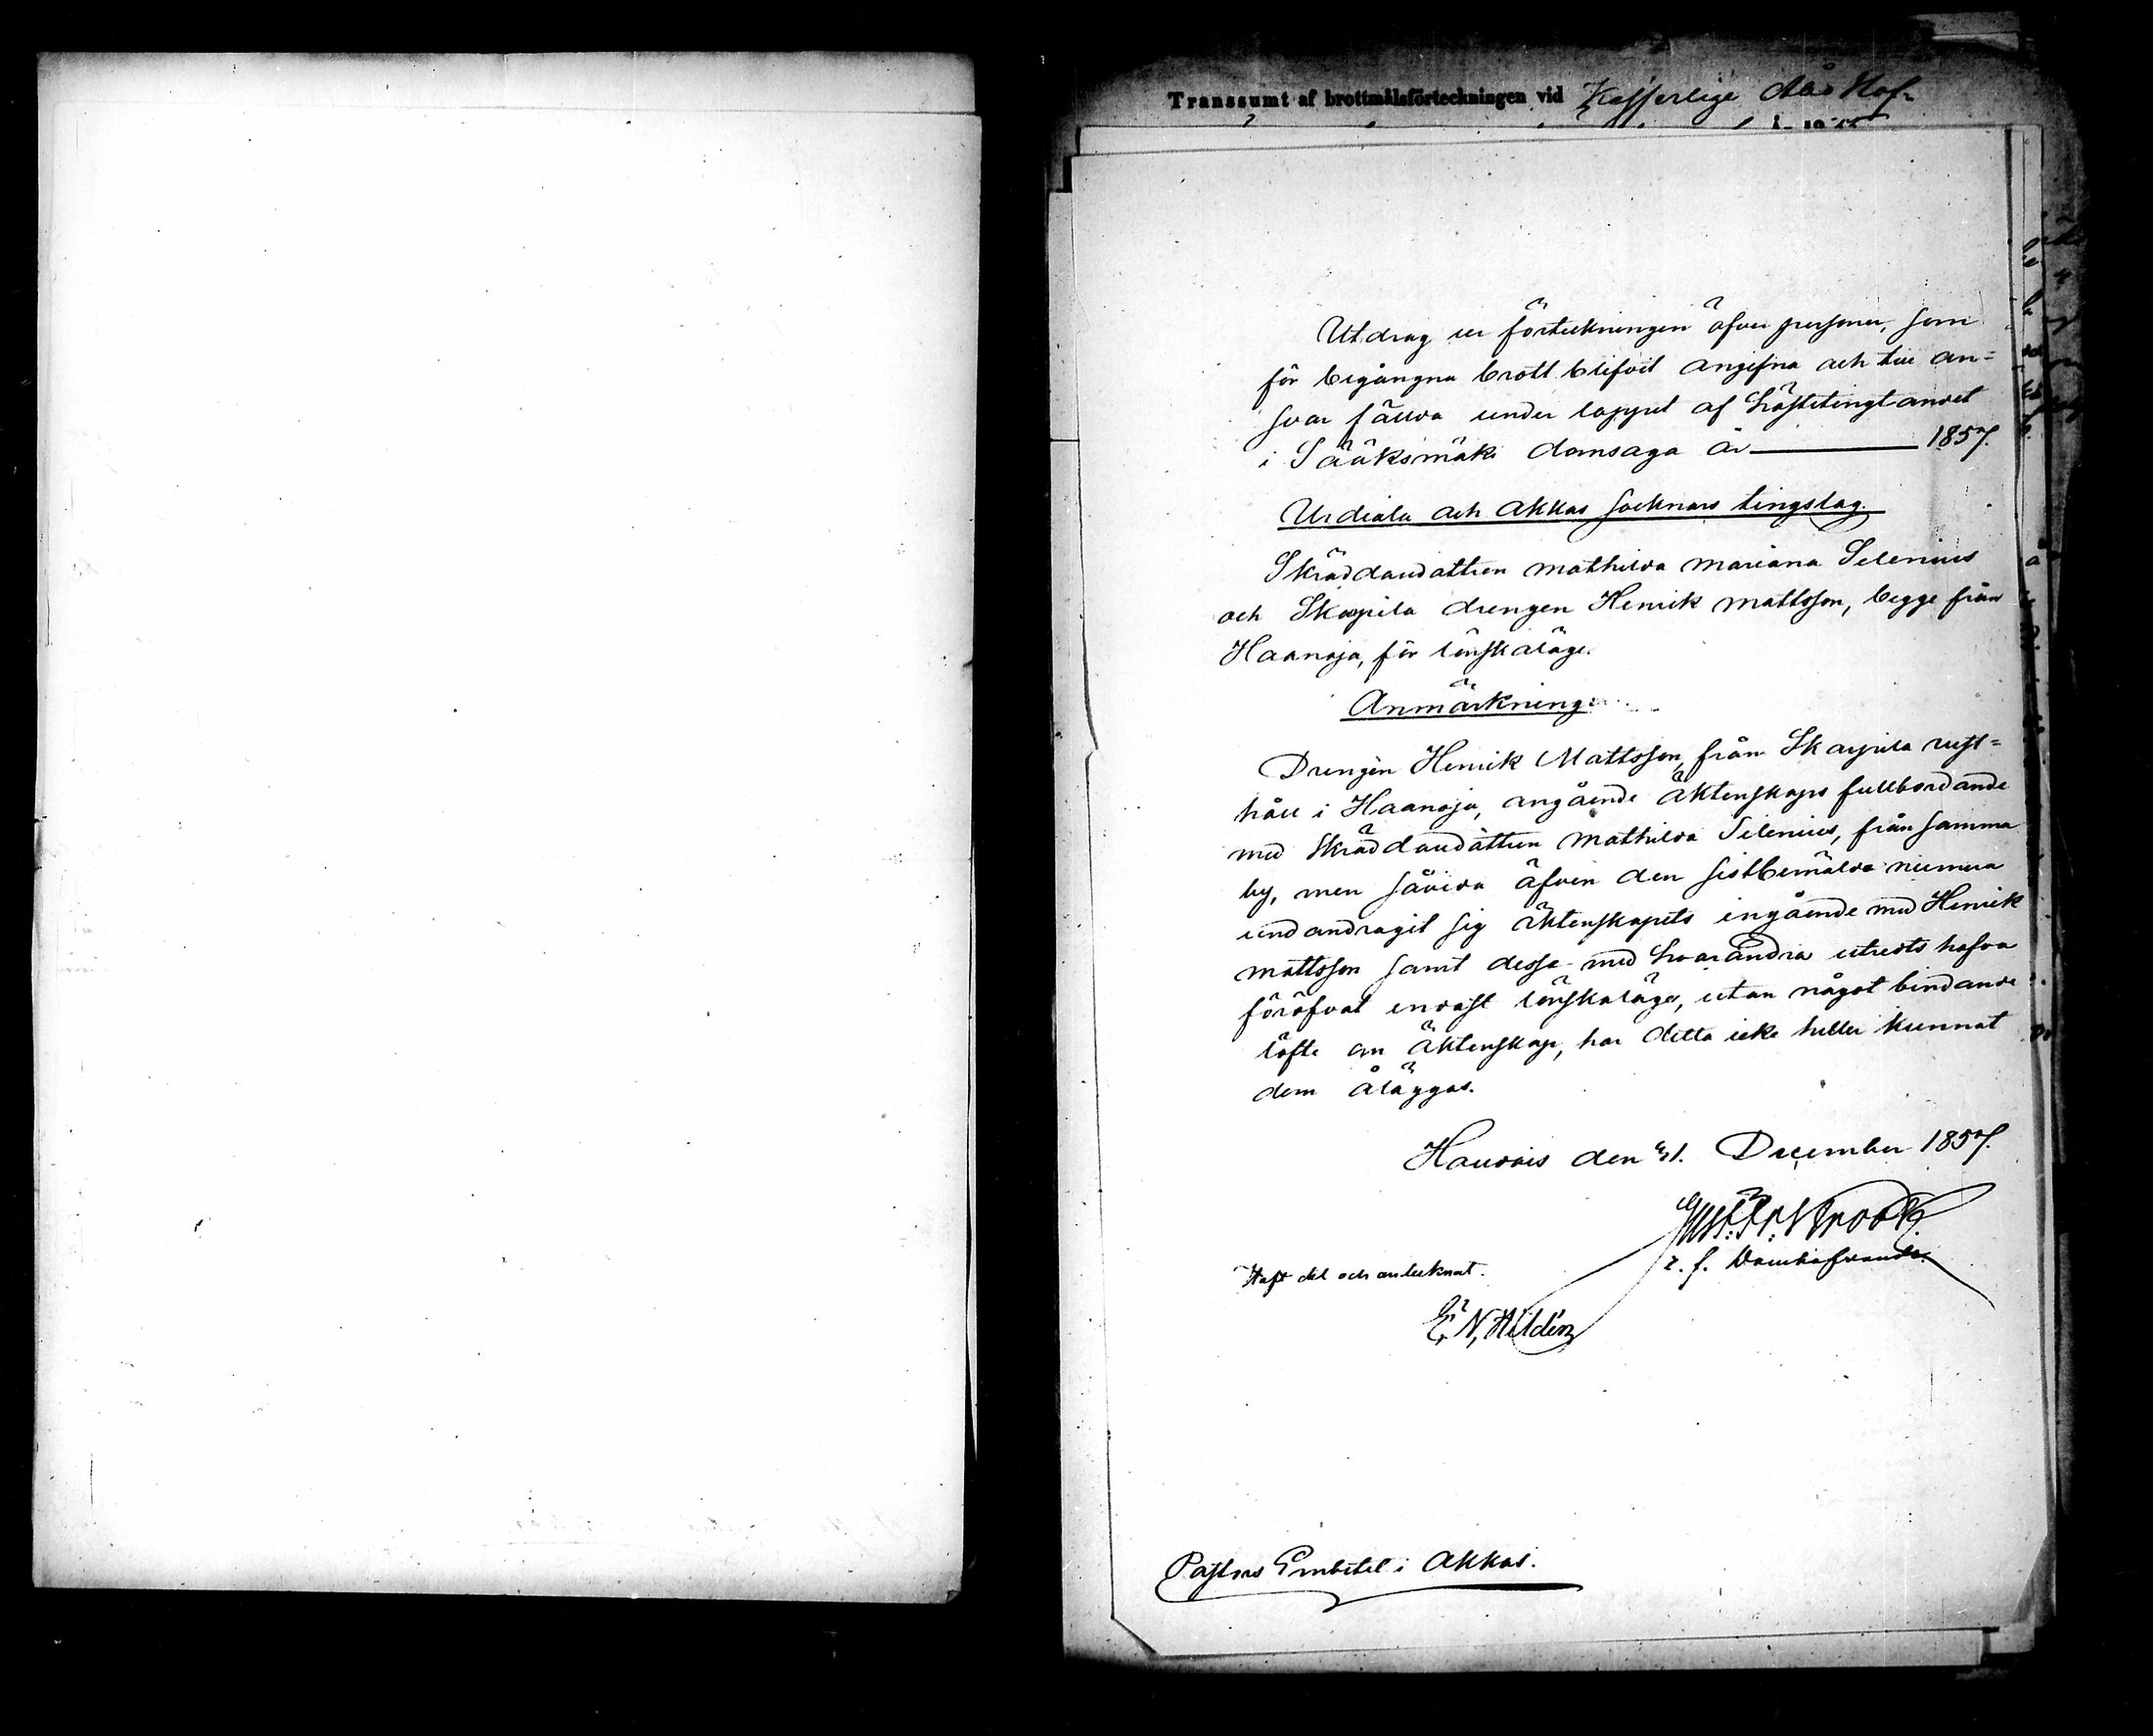 Transsumt af brottmålsförteckningen vid Kejserlige Åbo Hof-
Utdrag ur förteckningen öfver personer, som
för begångna brott blifvit angifna och till an-
svar fällda under loppet af hösteting tandet
i Sääksmäki domsaga år 1857.
Urdiala och Akkas socknars tingslag.
Skräddaredottren Mathilda Mariana Selenius
och Skarpila drengen Henrik Mattsson, begge från
Haanoja, för lönskaläge.
Anmärkning:
Drengen Henrik Mattsson, från Skarpila rust-
håll i Haanoja, angående äktenskaps fullbordande
med Skräddaredottren Mathilda Selenius, från samma
by, men såvida äfven den sistbemälde numera
undandragit sig äktenskapets ingående med Henrik
Mattsson samt desse med hvarandra utredts hafva
föröfvat endast lönskaläge, utan något bindande
löfte om äktenskap, har detta icke heller kunnat
dem åläggas.
Hauvois den 31. December 1857.
Gust. Fr. Krook
t. f. Domhafvande.
Haft del och antecknat.
E. N. Hildén
Pastors Embetet i Akkas.